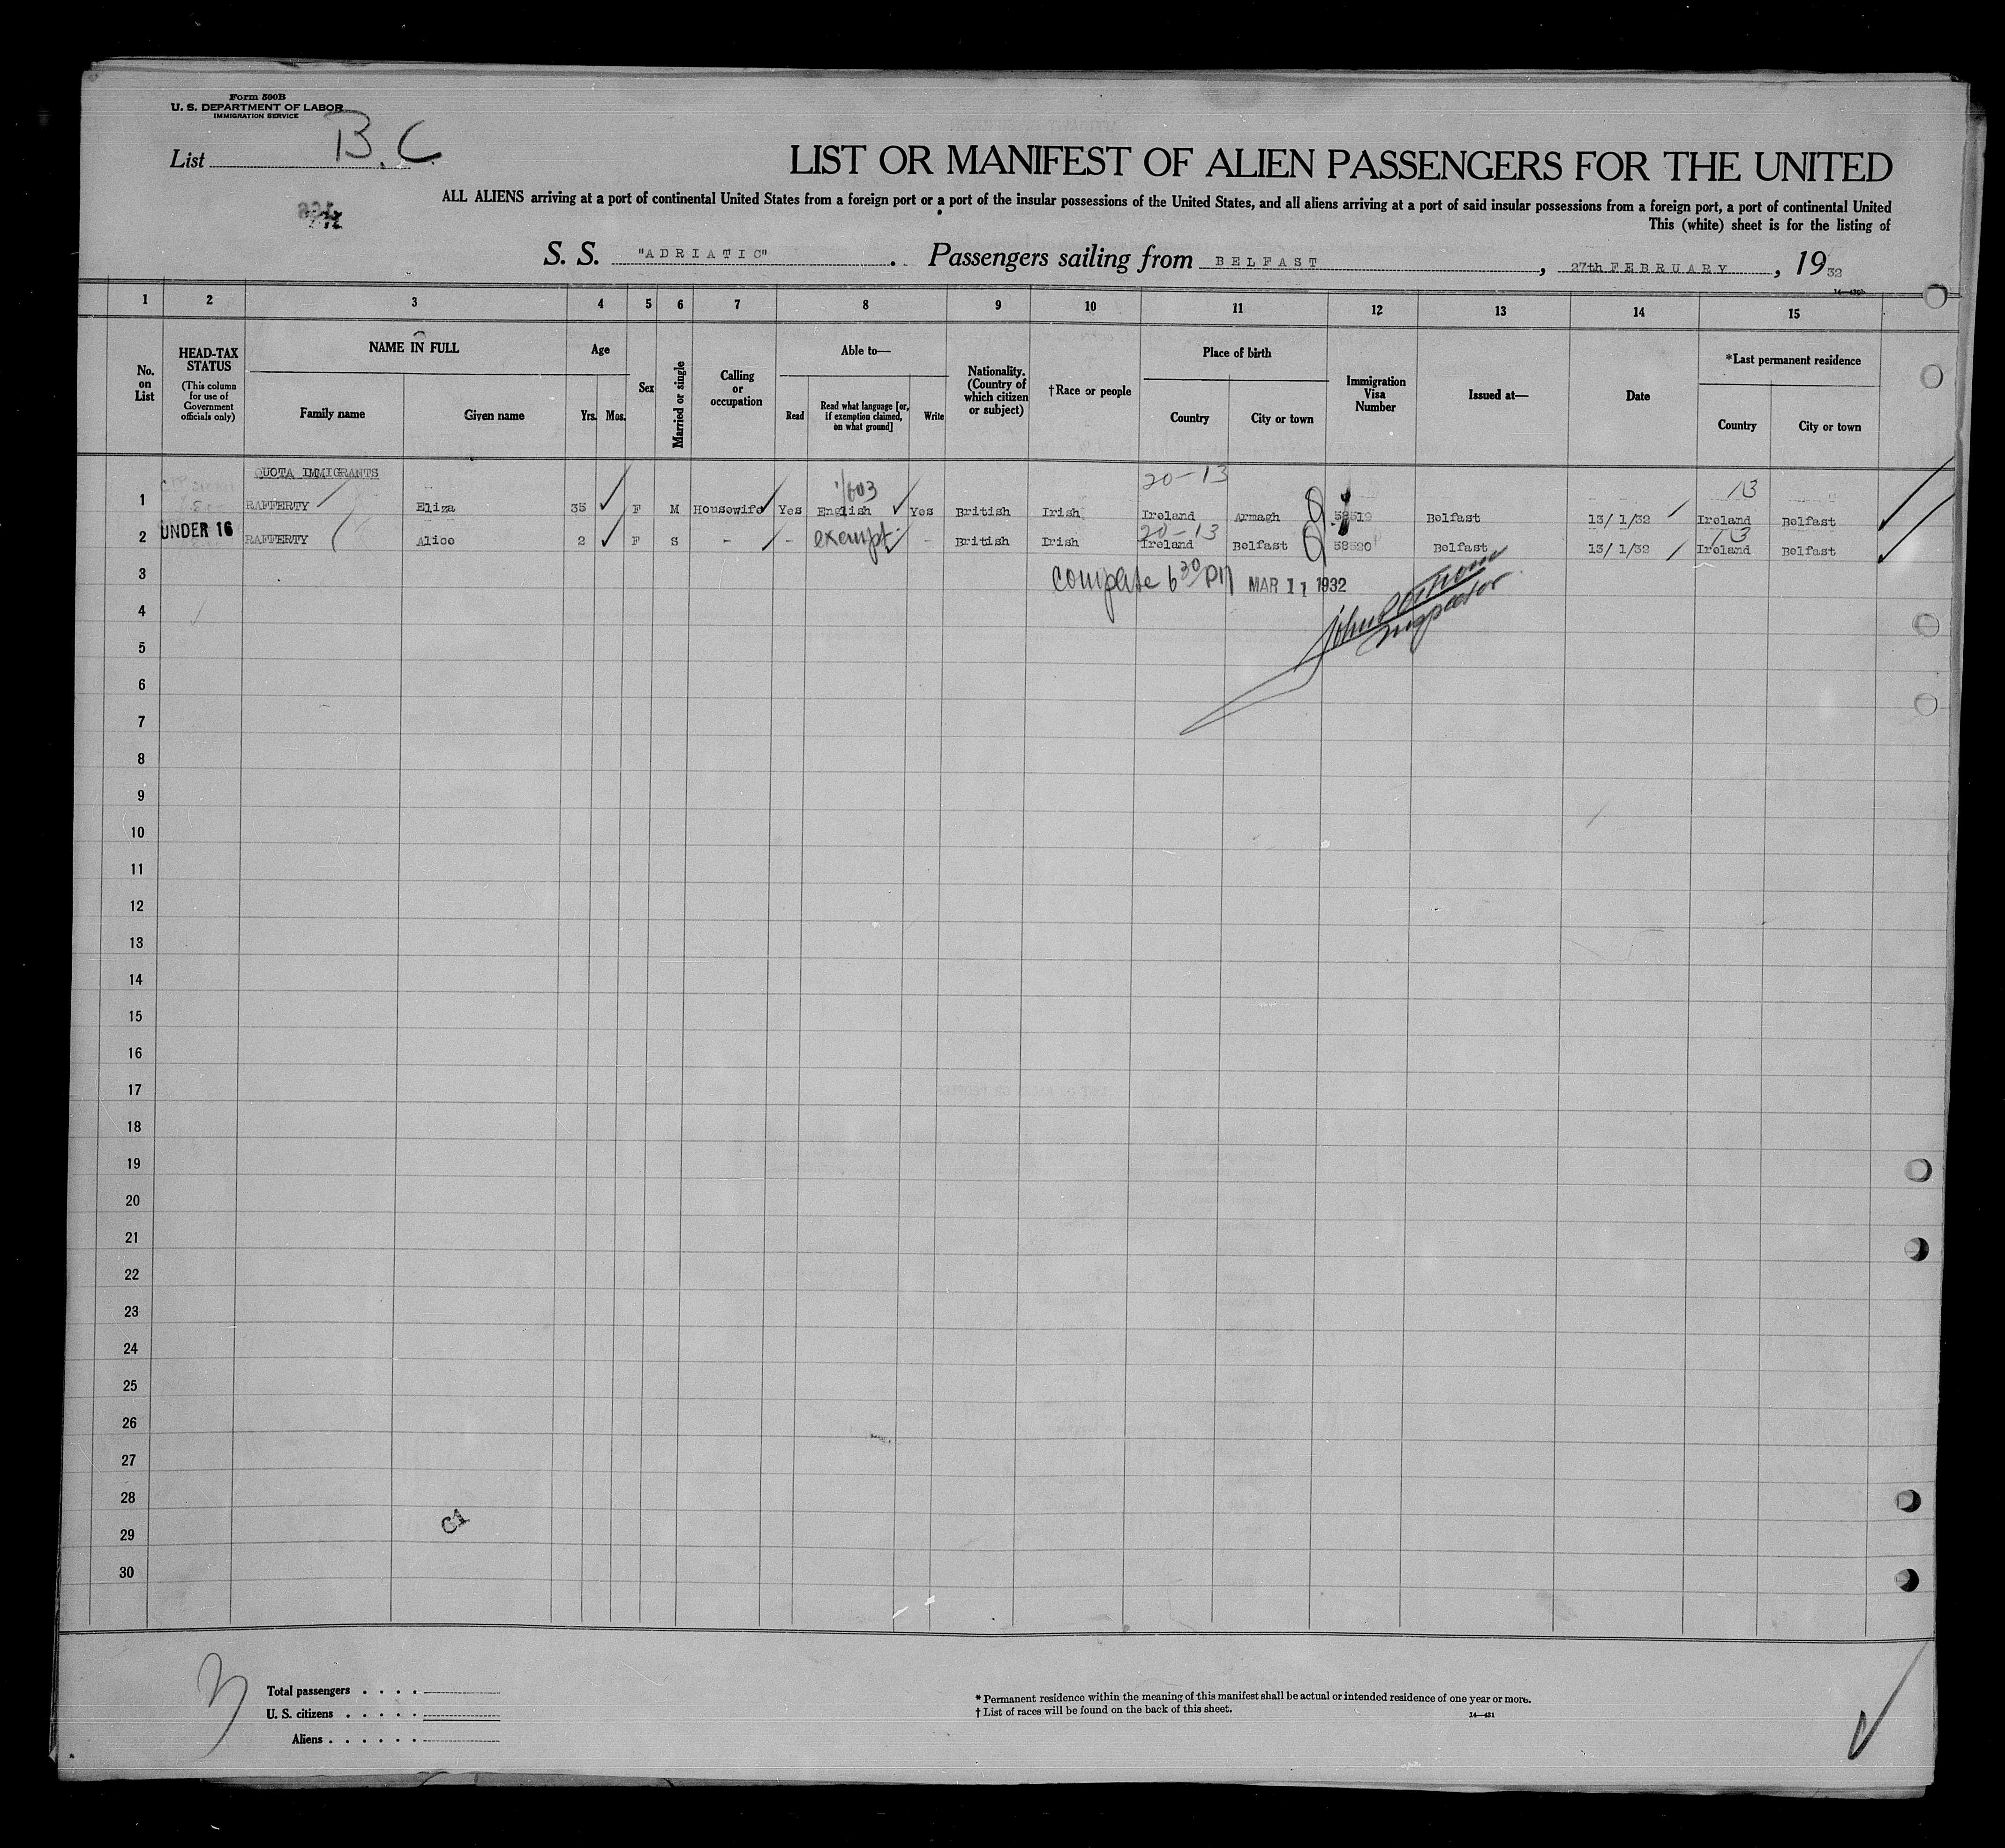 Form 500B
U. S. DEPARTMENT OF LABOR
IMMIGRATION SERVICE
List B. C.
LIST OR MANIFEST OF ALIEN PASSENGERS FOR THE UNITED
ALL ALIENS arriving at a port of continental United States from a foreign port or a port of the insular possessions of the United States, and all aliens arriving at a port of said insular possessions from a foreign port, a port of continental United
This (white) sheet is for the listing of
S. S. "ADRIATIC". Passengers sailing from BELFAST, 27th FEBRUARY, 1932
1 2 3 4 5 6 7 8 9 10 11 12 13 14 15
No. on List
HEAD-TAX STATUS (This column for use of Government officials only)
NAME IN FULL
Family name
Given name
Age
Yrs. Mos.
Sex
Married or single
Calling or occupation
Able to—
Read
Read what language [or, if exemption claimed, on what ground]
Write
Nationality. (Country of which citizen or subject)
†Race or people
Place of birth
Country
City or town
Immigration Visa Number
Issued at—
Date
*Last permanent residence
Country
City or town
QUOTA IMMIGRANTS
20-13
13
1 RAFFERTY Eliza 35 F M Housewife Yes English Yes British Irish Ireland Armagh 58519 Belfast 13/ 1/32 Ireland Belfast
20-13
13
2 UNDER 16 RAFFERTY Alice 2 F S - - exempt - British Irish Ireland Belfast 58520 Belfast 13/ 1/32 Ireland Belfast
3 complete 6 30 PM MAR 11 1932
Inspector
4
5
6
7
8
9
10
11
12
13
14
15
16
17
18
19
20
21
22
23
24
25
26
27
28
29
30
Total passengers . . . .
U. S. citizens . . . . .
Aliens . . . . . .
* Permanent residence within the meaning of this manifest shall be actual or intended residence of one year or more.
† List of races will be found on the back of this sheet.
14—431